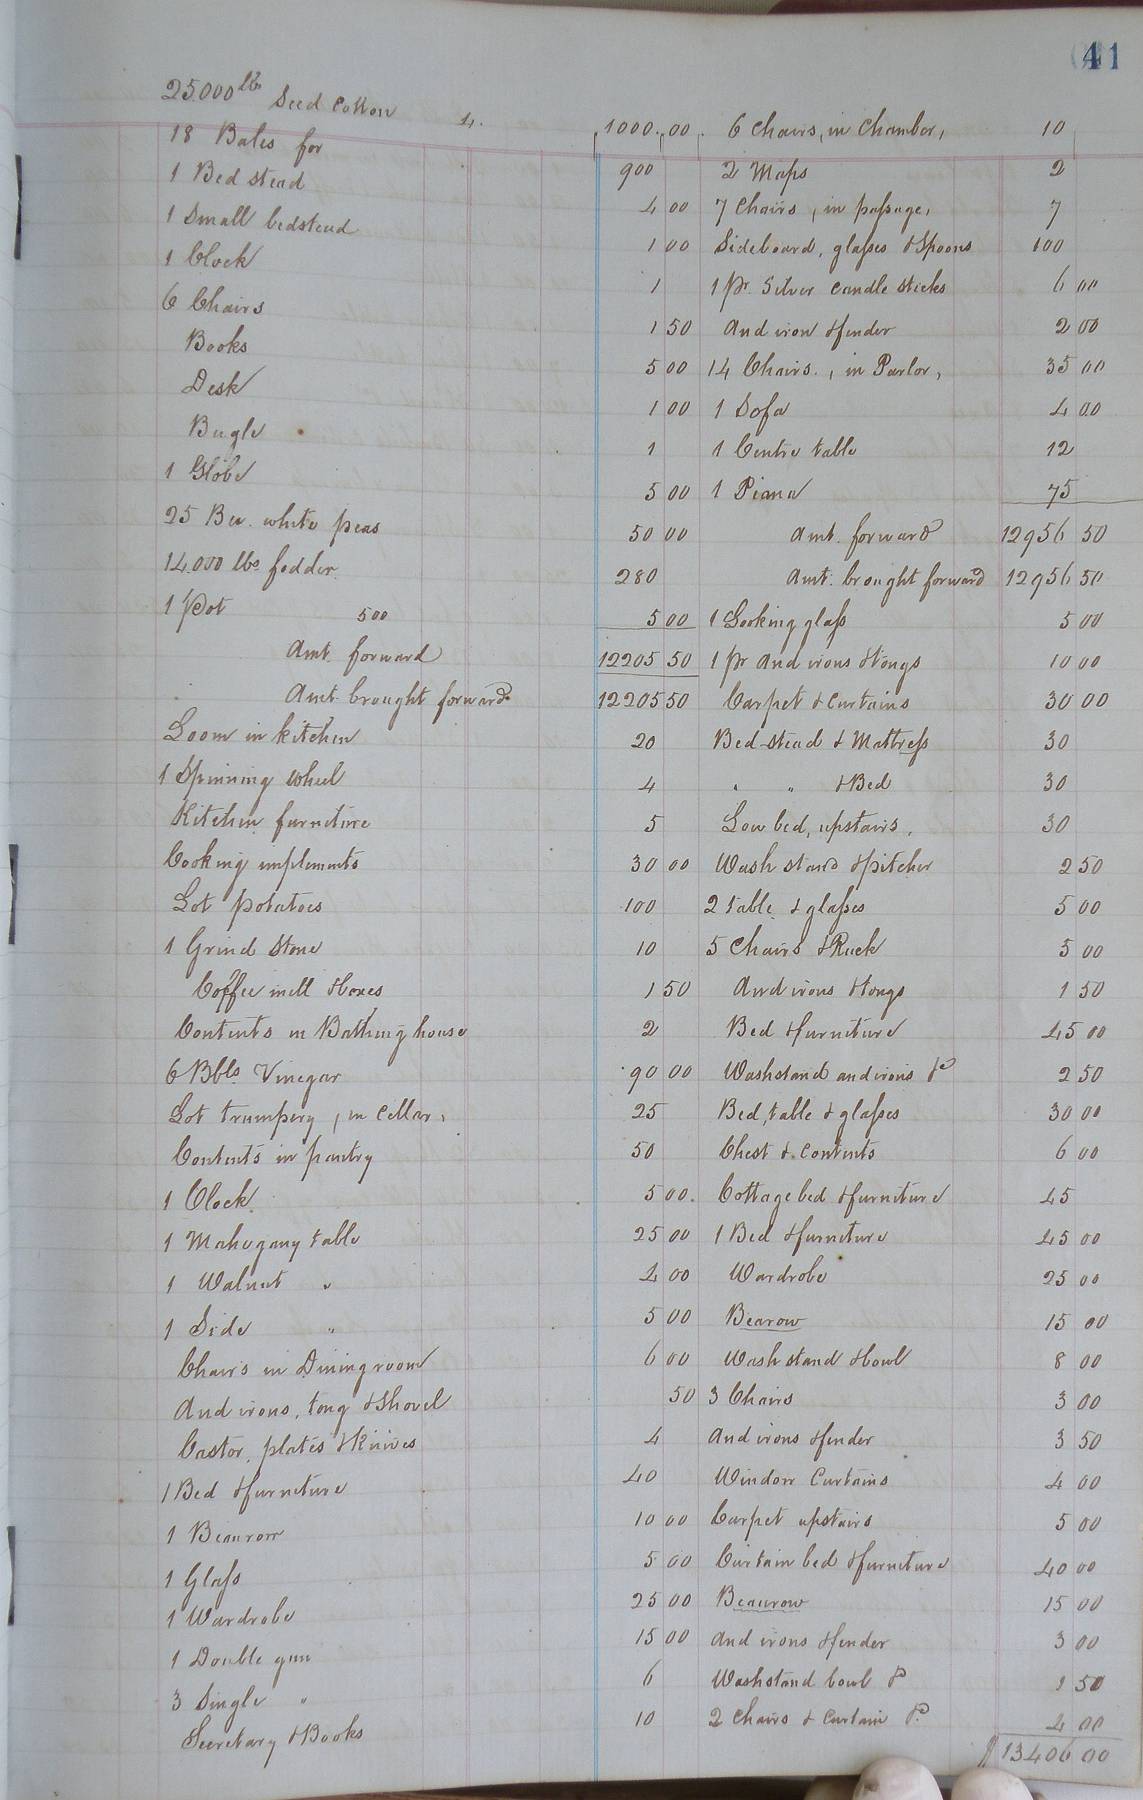 41
25000 lb Seed Cotton 4. 1000.00
18 Bales for 900
1 Bed stead 4 00
1 Small bedstead 1 00
1 Clock 1
6 Chairs 1 50
Books 5 00
Desk 1 00
Bugle 1
1 Globe 5 00
25 Bu. white peas 50 00
14.000 lbs fodder 280
1 Pot 500 5 00
Amt. forward 12205 50
Amt. brought forward 12205 50
Loom in kitchen 20
1 Spinning wheel 4
Kitchen furniture 5
Cooking implements 30 00
Lot potatoes 100
1 Grind Stone 10
Coffee mill & boxes 1 50
Contents in Bathing house 2
6 Bbls Vinegar 90 00
Lot trumpery, in cellar, 25
Contents in pantry 50
1 Clock 5 00.
1 Mahogany table 25 00
1 Walnut " 4 00
1 Side " 5 00
Chairs in Dining room 6 00
And irons, tong & Shovel 50
Castor, plates & Knives 4
1 Bed & furniture 40
1 Beaurow 10 00
1 Glass 5 00
1 Wardrobe 25 00
1 Double gun 15 00
3 Single " 6
Secretary & Books 10
6 Chairs, in Chamber, 10
2 Maps 2
7 Chairs, in passage, 7
Sideboard, glasses & Spoons 100
1 pr. Silver candle sticks 6 00
And iron & fender 2 00
14 Chairs., in Parlor, 35 00
1 Sofa 4 00
1 Centre table 12
1 Piano 75
Amt. forward 12956 50
Amt. brought forward 12956 50
1 Looking glass 5 00
1 pr And irons & tongs 10 00
Carpet & curtains 30 00
Bed-stead & Mattress 30
" " & Bed 30
Low bed, upstairs, 30
Wash stand & pitcher 2 50
2 table & glasses 5 00
5 Chairs & Rack 5 00
And irons & tongs 1 50
Bed & furniture 45 00
Washstand andirons &c 2 50
Bed, table & glasses 30 00
Chest & contents 6 00
Cottage bed & furniture 45
1 Bed & furniture 45 00
Wardrobe 25 00
Bearow 15 00
Wash stand & bowl 8 00
3 Chairs 3 00
And irons & fender 3 50
Window Curtains 4 00
Carpet upstairs 5 00
Curtain bed & furniture 40 00
Beaurow 15 00
And irons & fender 3 00
Washstand bowl &c 1 50
2 Chairs & curtain &c. 4 00
$13406 00